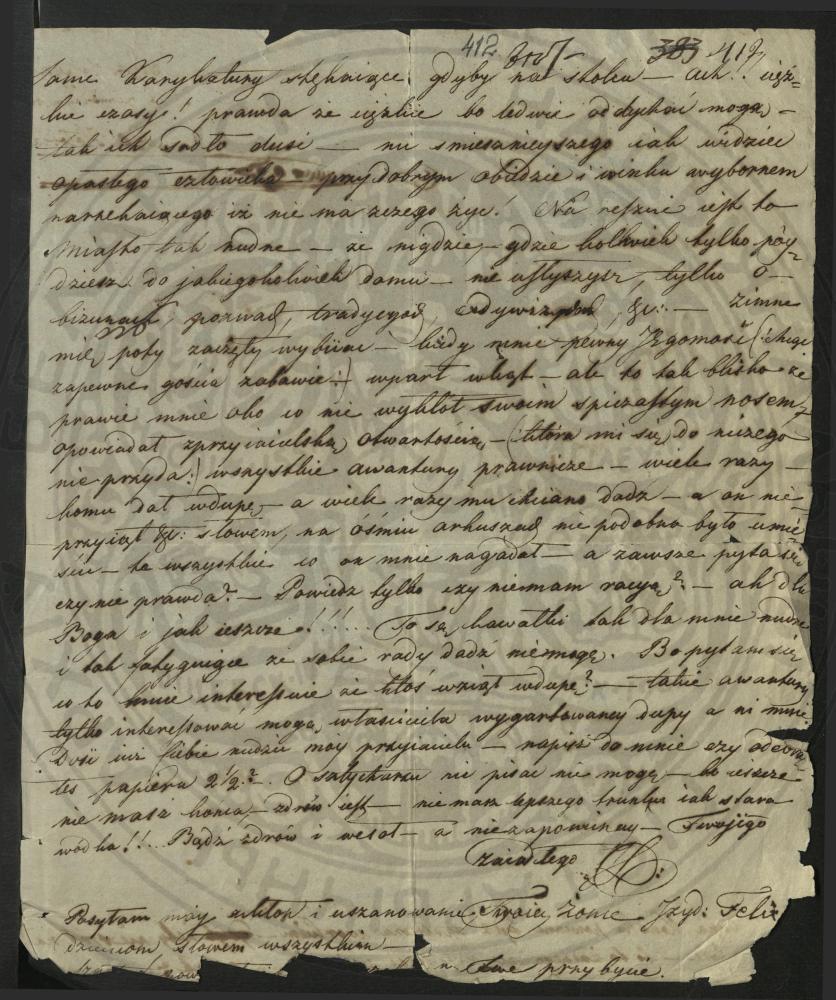 412 383 417
Same Karykatury stękaiące, gdyby na stolcu — ach! cięż=
kie czasy! prawda że ciężkie bo ledwie oddychać mogą, —
tak ich sadło dusi — nic smiesznieyszego iak widzieć
opasłego człowieka — przy dobrym obiedzie i winku wybornem
narzekaiącego iż nie ma zczego żyć! Na reszcie iest to
Miasto tak nudne — że nigdzie, — gdzie kolwiek tylko póy=
dziesz do jakiegokolwiek domu — nie usłyszysz, tylko o
pozwach, tradycyach, &c: — zimne
mię poty zaczęły wybiiać — kiedy mnie pewny Jegomość (:chcąc
zapewne gościa zabawić:) wparł w kąt — ale to tak blisko że
prawie mnie oko co nie wykłół swoim spiczastym nosem,
opowiadał zprzyiacielską otwartością, — (która mi się do niczego
nie przyda:) wszystkie awantury prawnicze — wiele razy —
komu dał wdupę, — a wiele razy mu chciano dadź — a on nie
przyiął &c: słowem, na ośmiu arkuszach nie podobna było umie=
scić — te wszystkie co on mnie nagadał — a zawsze pyta się
czy nie prawda? — Powiedz tylko czy niemam racyą? — ah dla
Boga i jak ieszcze!!!... To są kawałki tak dla mnie nudne
i tak fatyguiące że sobie rady dadź niemogę. Bo pytam się
co to mnie interessuie że ktoś wziął wdupę? — takie awantury
tylko interessować mogą, właściciela wygarbowaney dupy a ni mnie
Dość iuż Ciebie nudzić moy przyiacielu — napisz do mnie czy odebra=
łeś papiera 2 1/2.? O Satyckarzu nic pisać nie mogę — bo ieszcze
nie masz konca — zdrów iest — nie masz lepszego trunku iak stara
wodka!!.. Bądź zdrów i wesoł — a niezapominay — Twojego
Zaiadłego
Posyłam móy ukłon i uszanowanie Twoiey Żonie Izyd: Felix
dzieciom słowem wszystkim —
Twe przybycie.